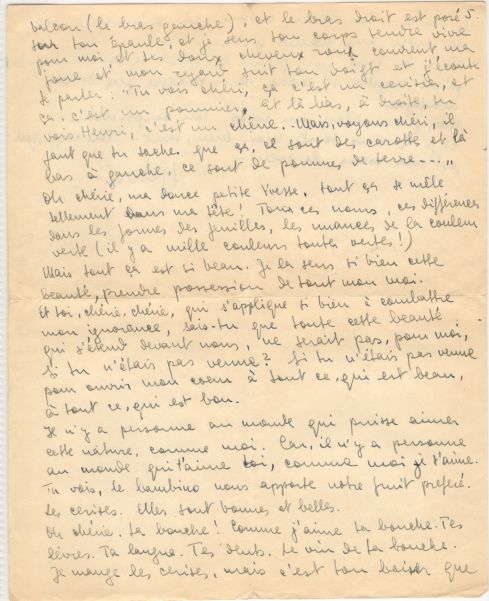 balcon (le bras gauche), et le bras droit est posé 5.
sur ton épaule, et je sens ton corps tendre vivre
pour moi, et tes doux cheveux roux couvrent ma
joue et mon regard suit ton doigt et j'écoute
te parler: "Tu vois chéri, ça c'est un cerisier, et
ça c'est un pommier, et là bas, à droite, tu
vois Henri, c'est un chêne. Mais, voyons chéri, il
faut que tu sache que ça, ce sont de carottes et là
bas à gauche, ce sont de pommes de terre - - - "
Oh chérie, ma douce petite Yvette, tout ça se mêle
tellement dans ma tête! Tous ces noms, ces différences
dans les formes des feuilles, les nuances de la couleur
verte (il y a mille couleurs toutes vertes!)
Mais tout ça est si beau. Je la sens si bien cette
beauté, prendre possession de tout mon moi.
Et toi, chérie, chérie, qui s'applique si bien à combattre
mon ignorance, sais-tu que toute cette beauté
qui s'étend devant nous, ne serait pas, pour moi,
si tu n'étais pas venue? Si tu n'étais pas venue
pour ouvrir mon coeur à tout ce, qui est beau,
à tout ce, qui est bon.
Je n'y a personne au monde qui puisse aimer
cette nature, comme moi. Car, il n'y a personne
au monde qui t'aime toi, comme moi je t'aime.
Tu vois, le bambino nous apporte notre fruit préféré.
Les cerises. Elles sont bonnes et belles.
Oh chérie. Ta bouche! Comme j'aime ta bouche. Tes
lèvres. Ta langue. Tes dents. Le vin de ta bouche.
Je mange les cerises, mais c'est ton baiser que